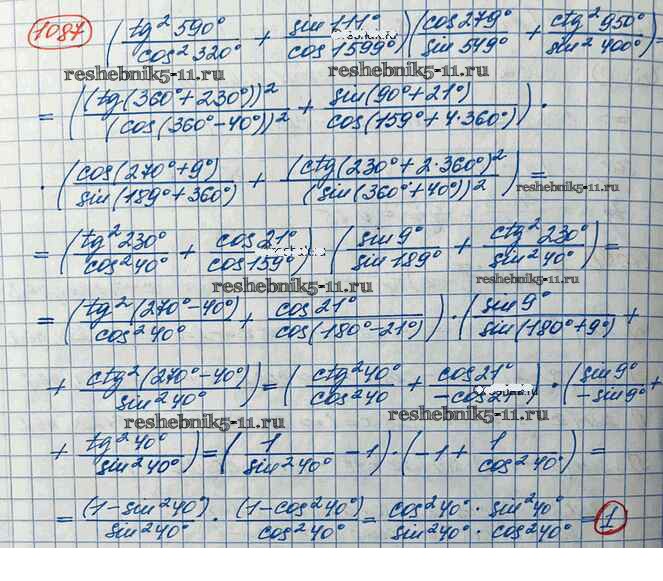 1087 (tg² 590° / cos² 320° + sin 111° / cos 1599°)(cos 279° / sin 549° + ctg² 950° / sin² 400°) =
reshebnik5-11.ru reshebnik5-11.ru
= ((tg(360° + 230°))² / (cos(360° - 40°))² + sin(90° + 21°) / cos(159° + 4·360°)) ·
· (cos(270° + 9°) / sin(189° + 360°) + (ctg(230° + 2·360°)² / (sin(360° + 40°))²) =
reshebnik5-11.ru
= (tg² 230° / cos² 40° + cos 21° / cos 159°) (sin 9° / sin 189° + ctg² 230° / sin² 40°) =
reshebnik5-11.ru reshebnik5-11.ru
= (tg² (270° - 40°) / cos² 40° + cos 21° / cos(180° - 21°)) · (sin 9° / sin(180° + 9°) +
+ ctg² (270° - 40°) / sin² 40°) = (ctg² 40° / cos² 40 + cos 21° / -cos 21°) · (sin 9° / -sin 9° +
reshebnik5-11.ru reshebnik5-11.ru
+ tg² 40° / sin² 40°) = (1 / sin² 40° - 1) · (-1 + 1 / cos² 40°) =
= (1 - sin² 40°) / sin² 40° · (1 - cos² 40°) / cos² 40° = cos² 40° · sin² 40° / sin² 40° · cos² 40° = 1
reshebnik5-11.ru reshebnik5-11.ru